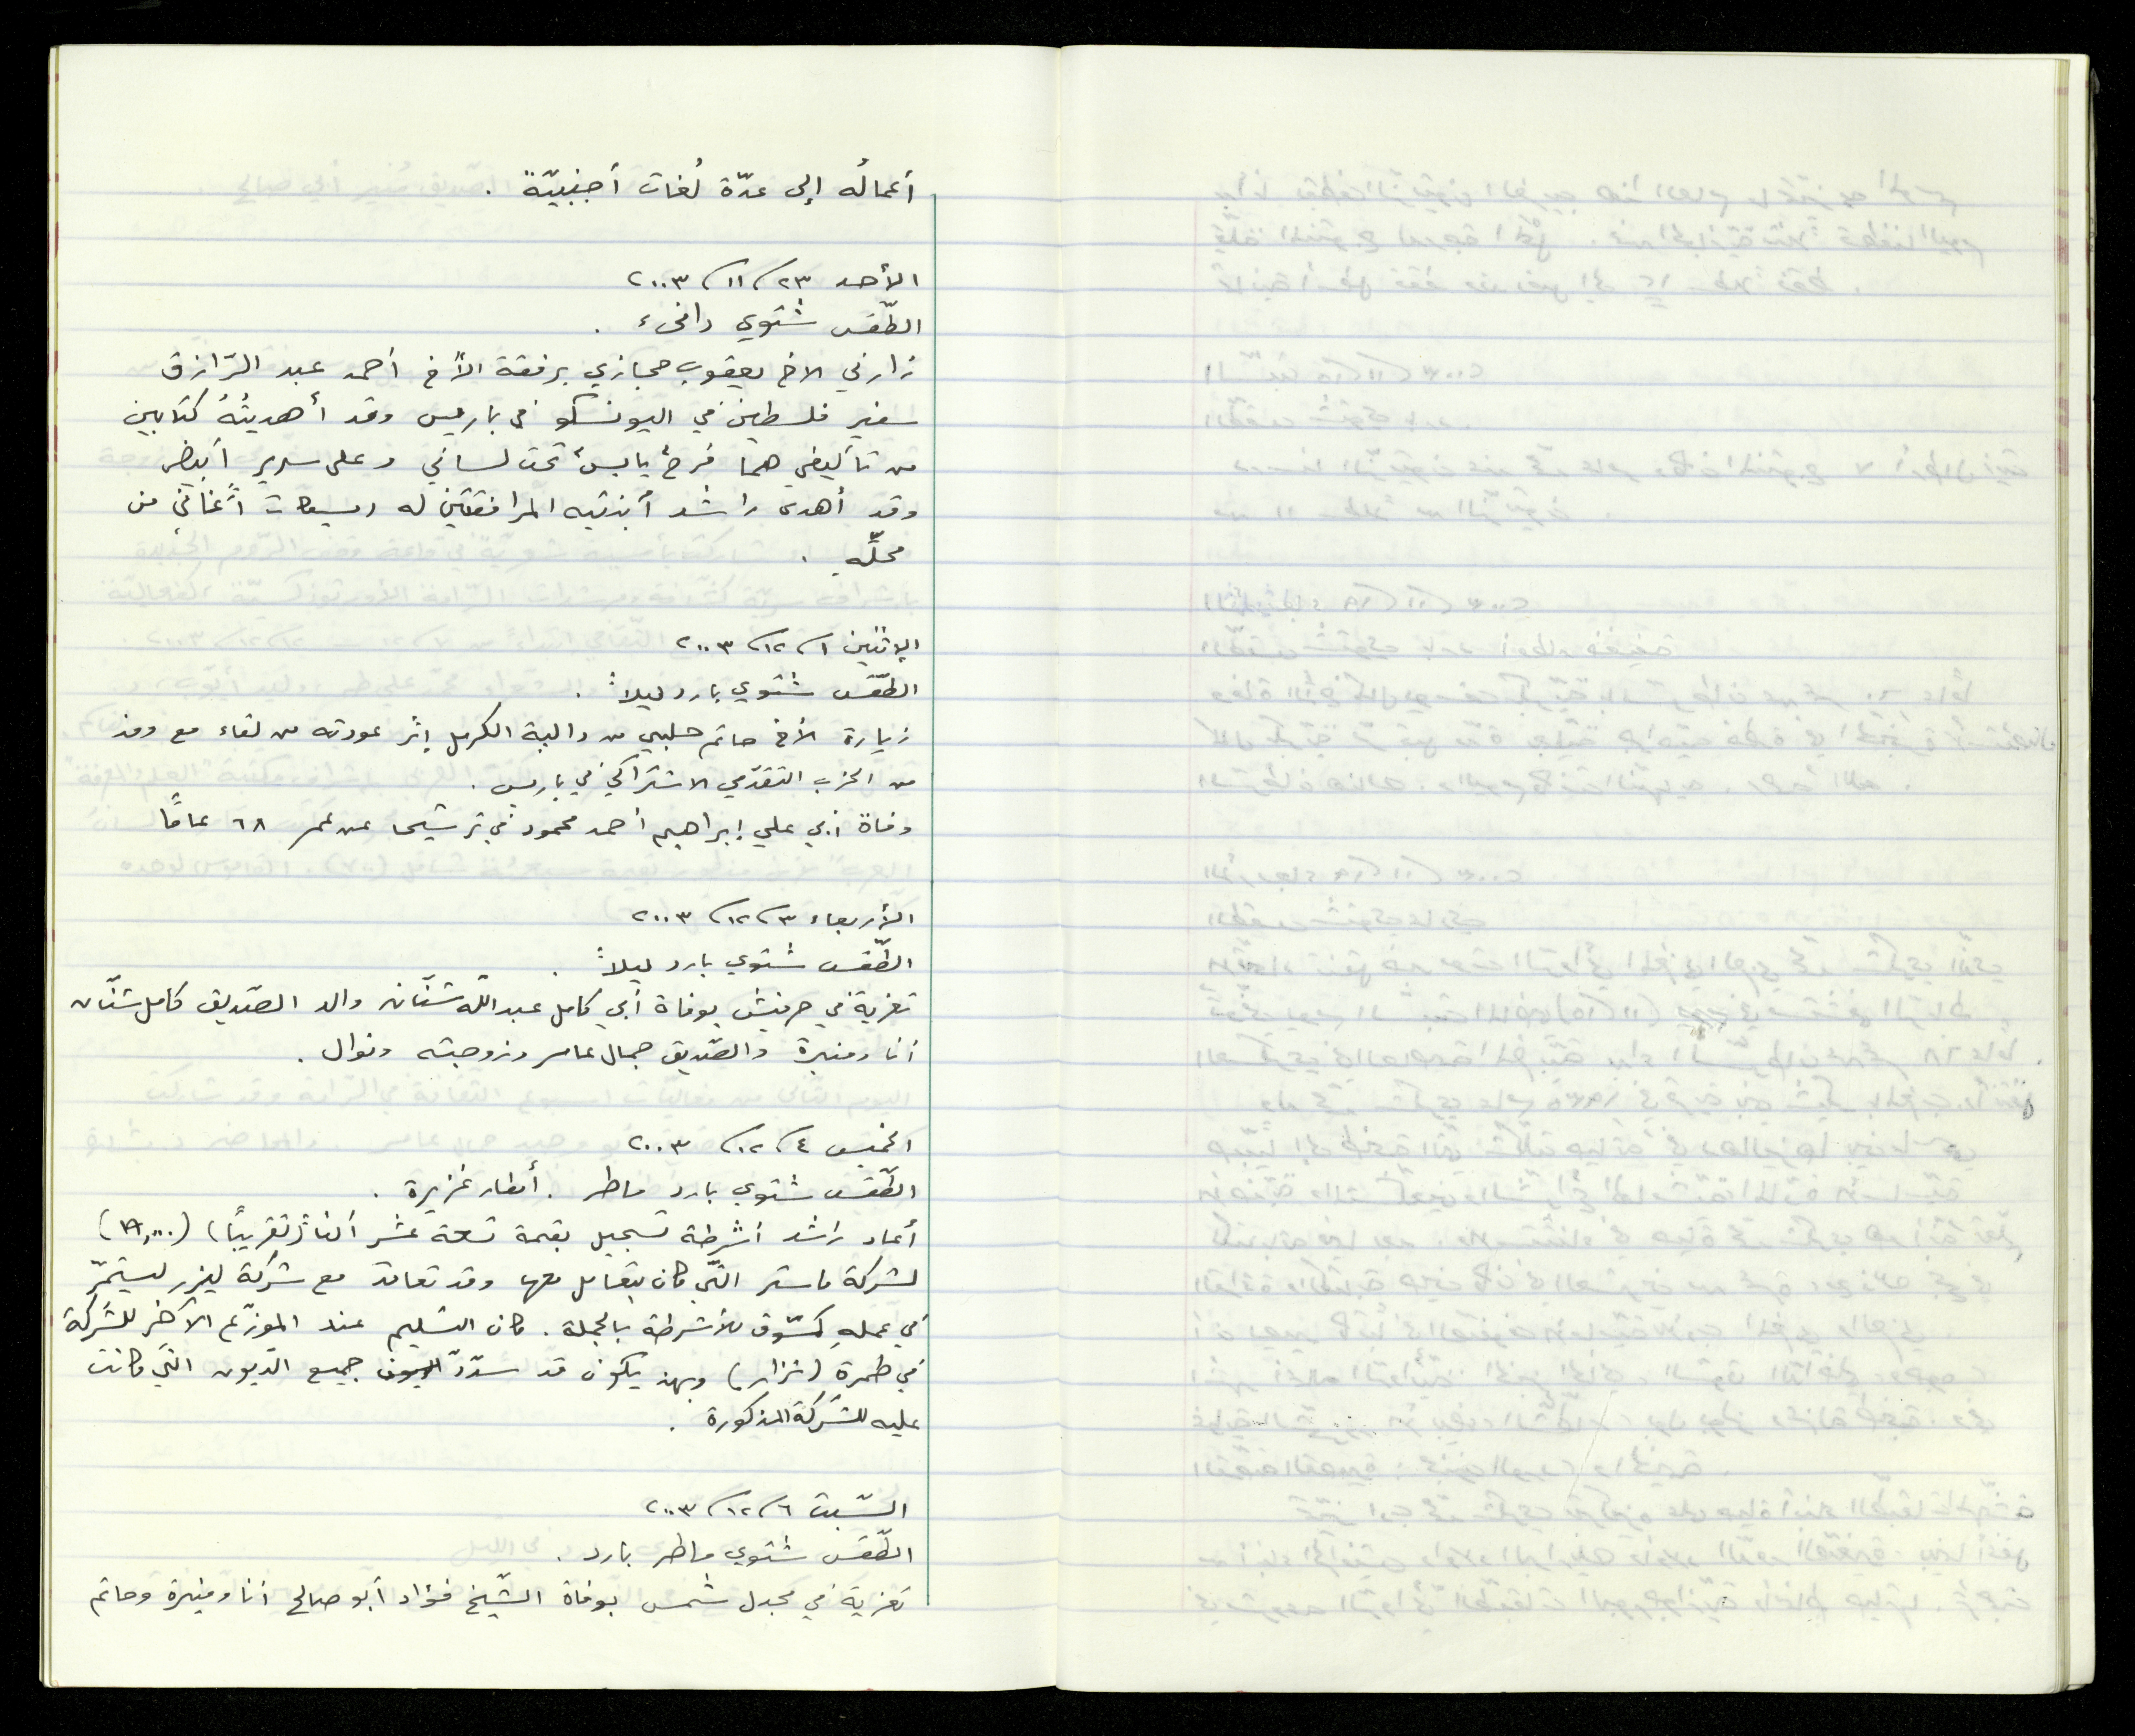 أعمالُه إلى عدّة لُغات أجنبيّة .
الأحد ٢٣/١١/٢٠٠٣
الطّقس شتوي دافىء .
زارني الاخ يعقوب حجازي برفقة الأخ أحمد عبد الرّازق
سفير فلسطين في اليونسكو في باريس وقد أهديتُهُ كتابين
من تأليفي هما فرحٌ يابسٌ تحت لساني وعلى سريرٍ أبيضَ
وقد أهدى راشد أبنتيه المرافقتين له اغاني من
محلّه .
الإثنين ١/١٢/٢٠٠٣
الطّقس شتوي بارد ليلاً .
زيارة الأخ حاتم حلبي من دالية الكرمل إثر عودته من لقاء مع وفد
من الحزب التقدّمي الاشتراكي في باريس .
وفاة أبي علي إبراهيم أحمد محمود في ترشيحا عن عمر ٦٨ عامًا
الأربعاء ٣/١٢/٢٠٠٣
الطّقس شتوي بارد ليلاً .
تعزية في حرفيش بوفاة أبي كامل عبد الله شنّان والد الصّديق كامل شنّان
أنا ومنيرة والصّديق جمال عامر وزوجته ونوال .
الخميس ٤/١٢/٢٠٠٣
الطّقس شتوي بارد ماطر . أمطار غزيرة .
أعاد راشد أشرطة تسجيل بقيمة تسعة عشر ألفا (تقريبًا) (١٩,٠٠٠)
لشركة ماستر التّي كان يتعامل معها وقد تعاقد مع شركة ليزر ليستمرّ
في عملِهِ كمسّوق للأشرطة بالجملة . كان التسليم عند الموزّع الآخر للشّركة
في طمرة (نزار) وبهذ يكون قد سدّدّ جميع الديون التّي كانت
عليه للشّركة المذكورة .
السّبت ٦/١٢/٢٠٠٣
الطّقس شتوي ماطر بارد .
تعزية في مجدل شمس بوفاة الشّيخ فؤاد أبو صالح أنا ومنيرة وحاتم